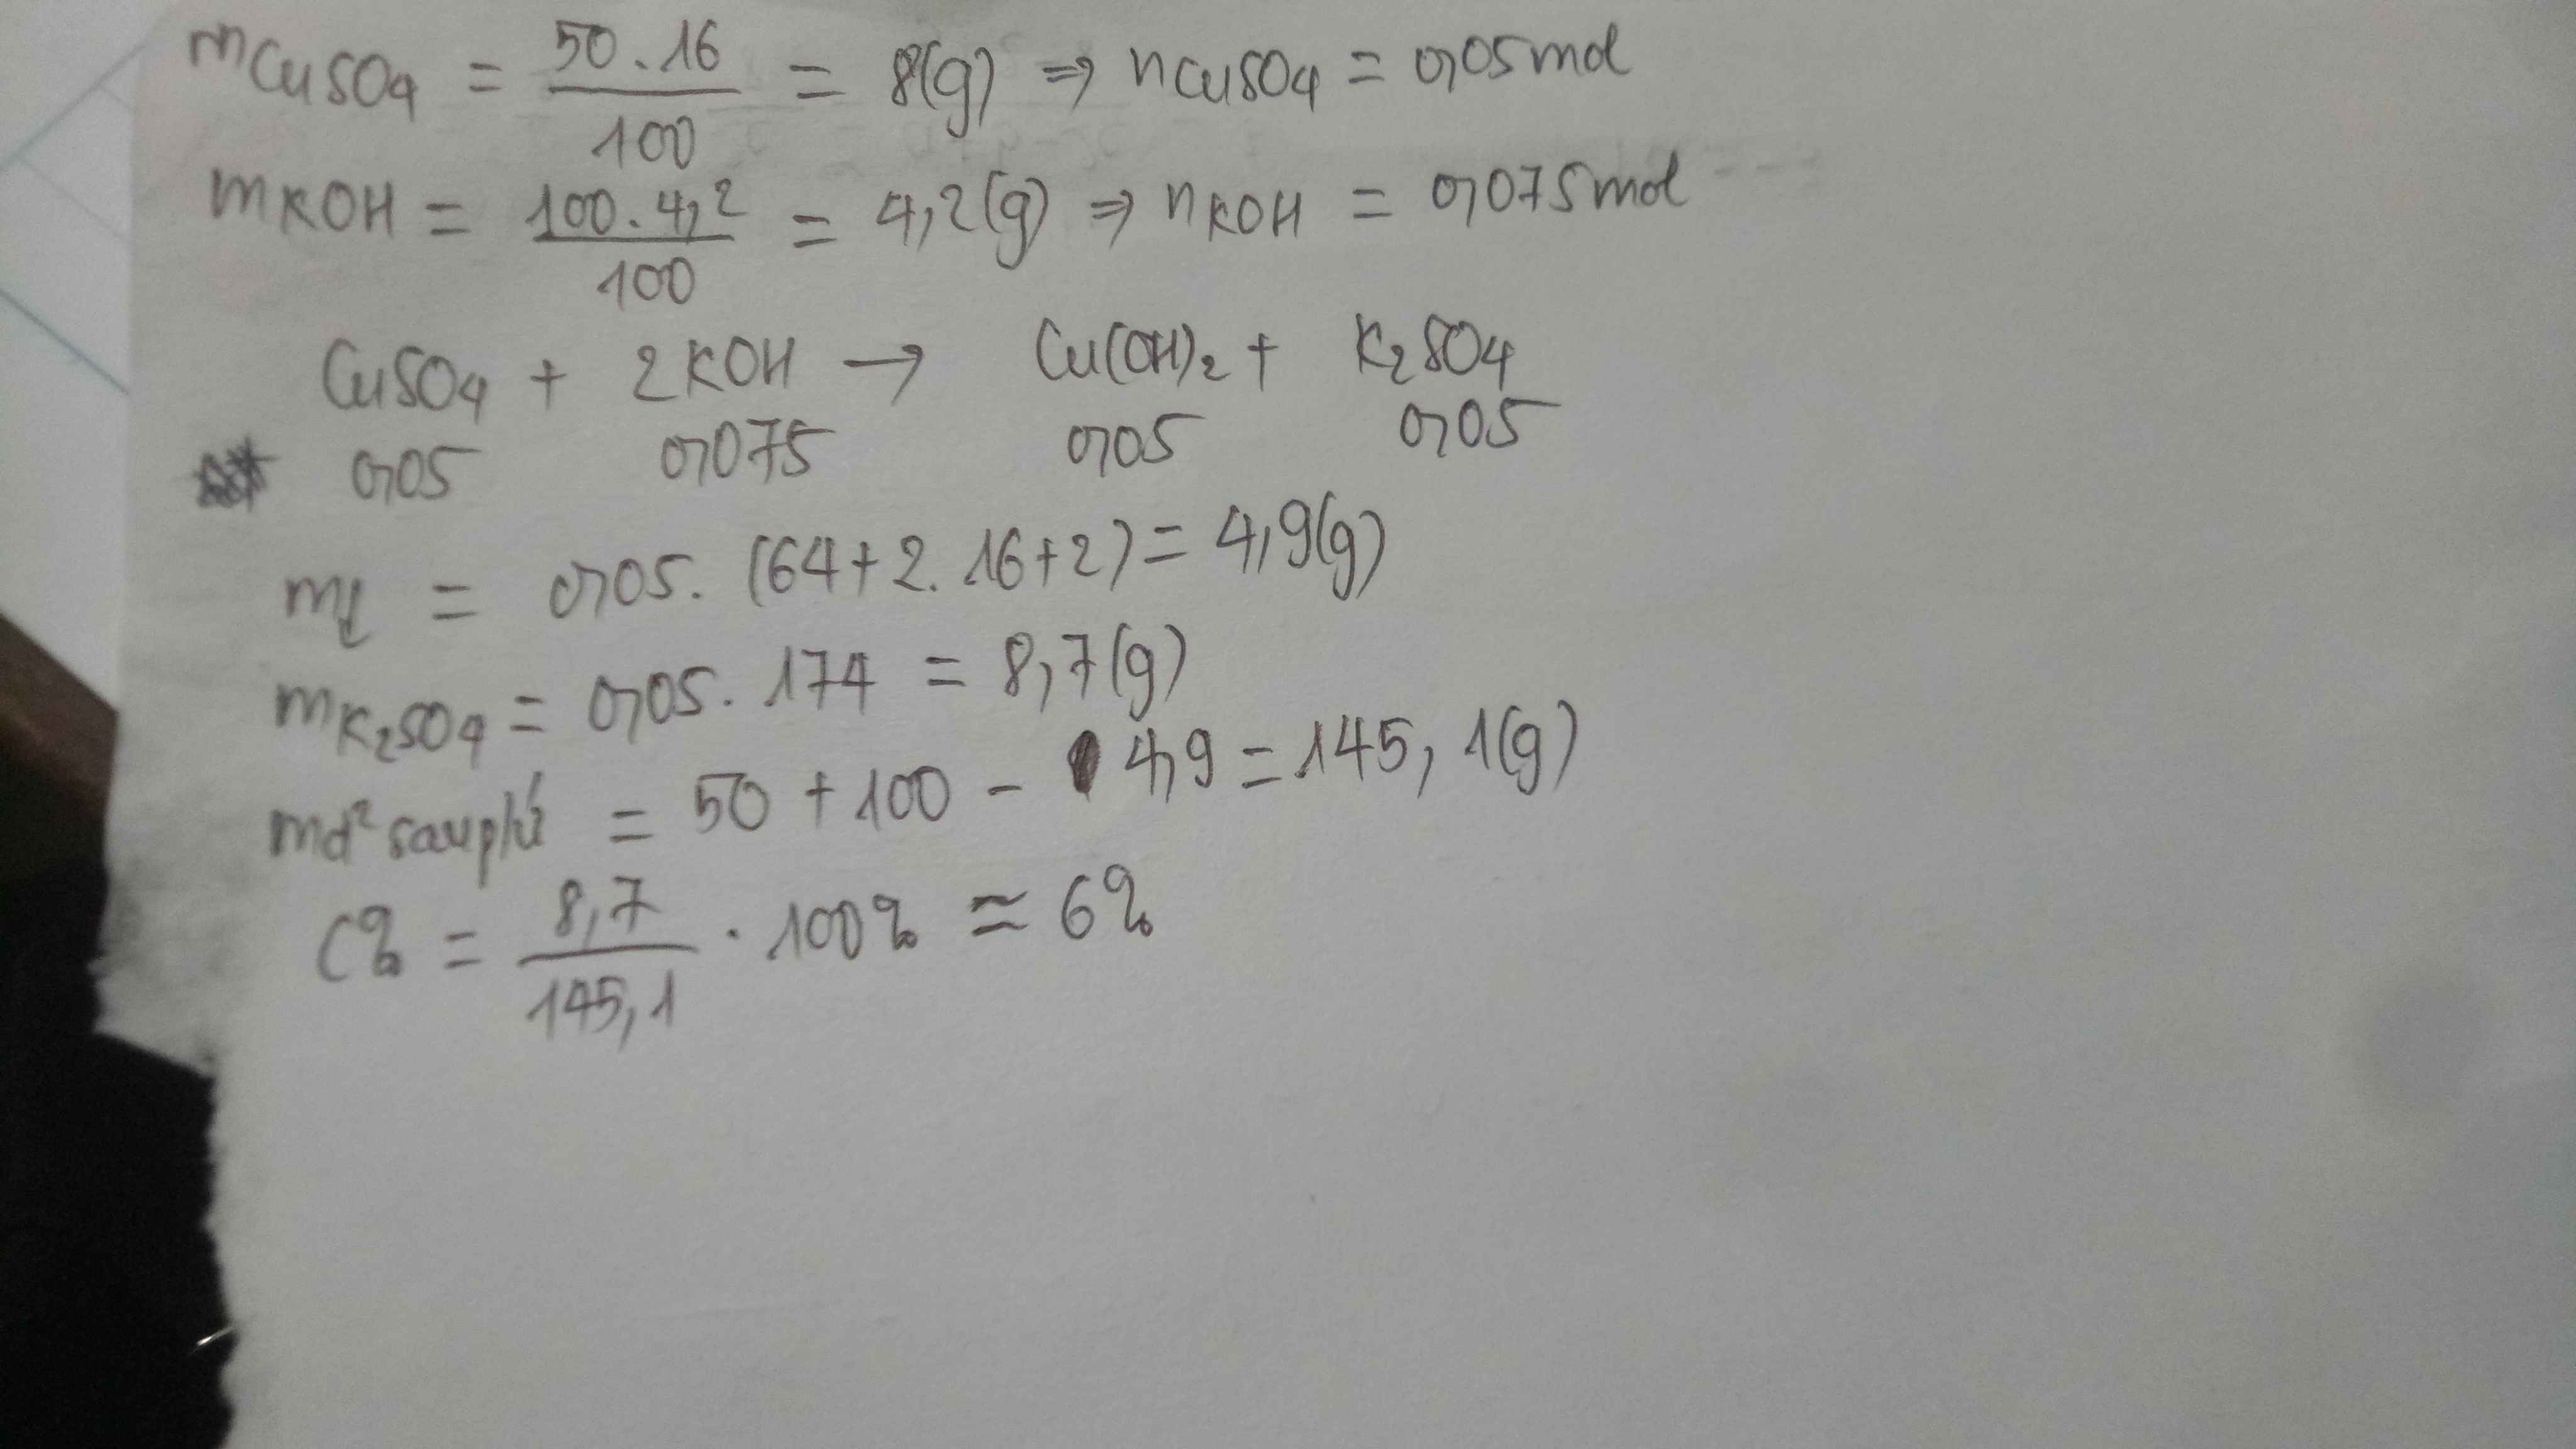 mCuSO4 = 50.16/100 = 8(g) ⇒ nCuSO4 = 0,05mol
mKOH = 100.4,2/100 = 4,2(g) ⇒ nKOH = 0,075mol
CuSO4 + 2KOH → Cu(OH)2 + K2SO4
0,05 0,075 0,05 0,05
m↓ = 0,05. (64+2.16+2) = 4,9(g)
mK2SO4 = 0,05. 174 = 8,7(g)
md² sau pứ = 50 + 100 - 4,9 = 145,1(g)
C% = 8,7/145,1 . 100% ≈ 6%